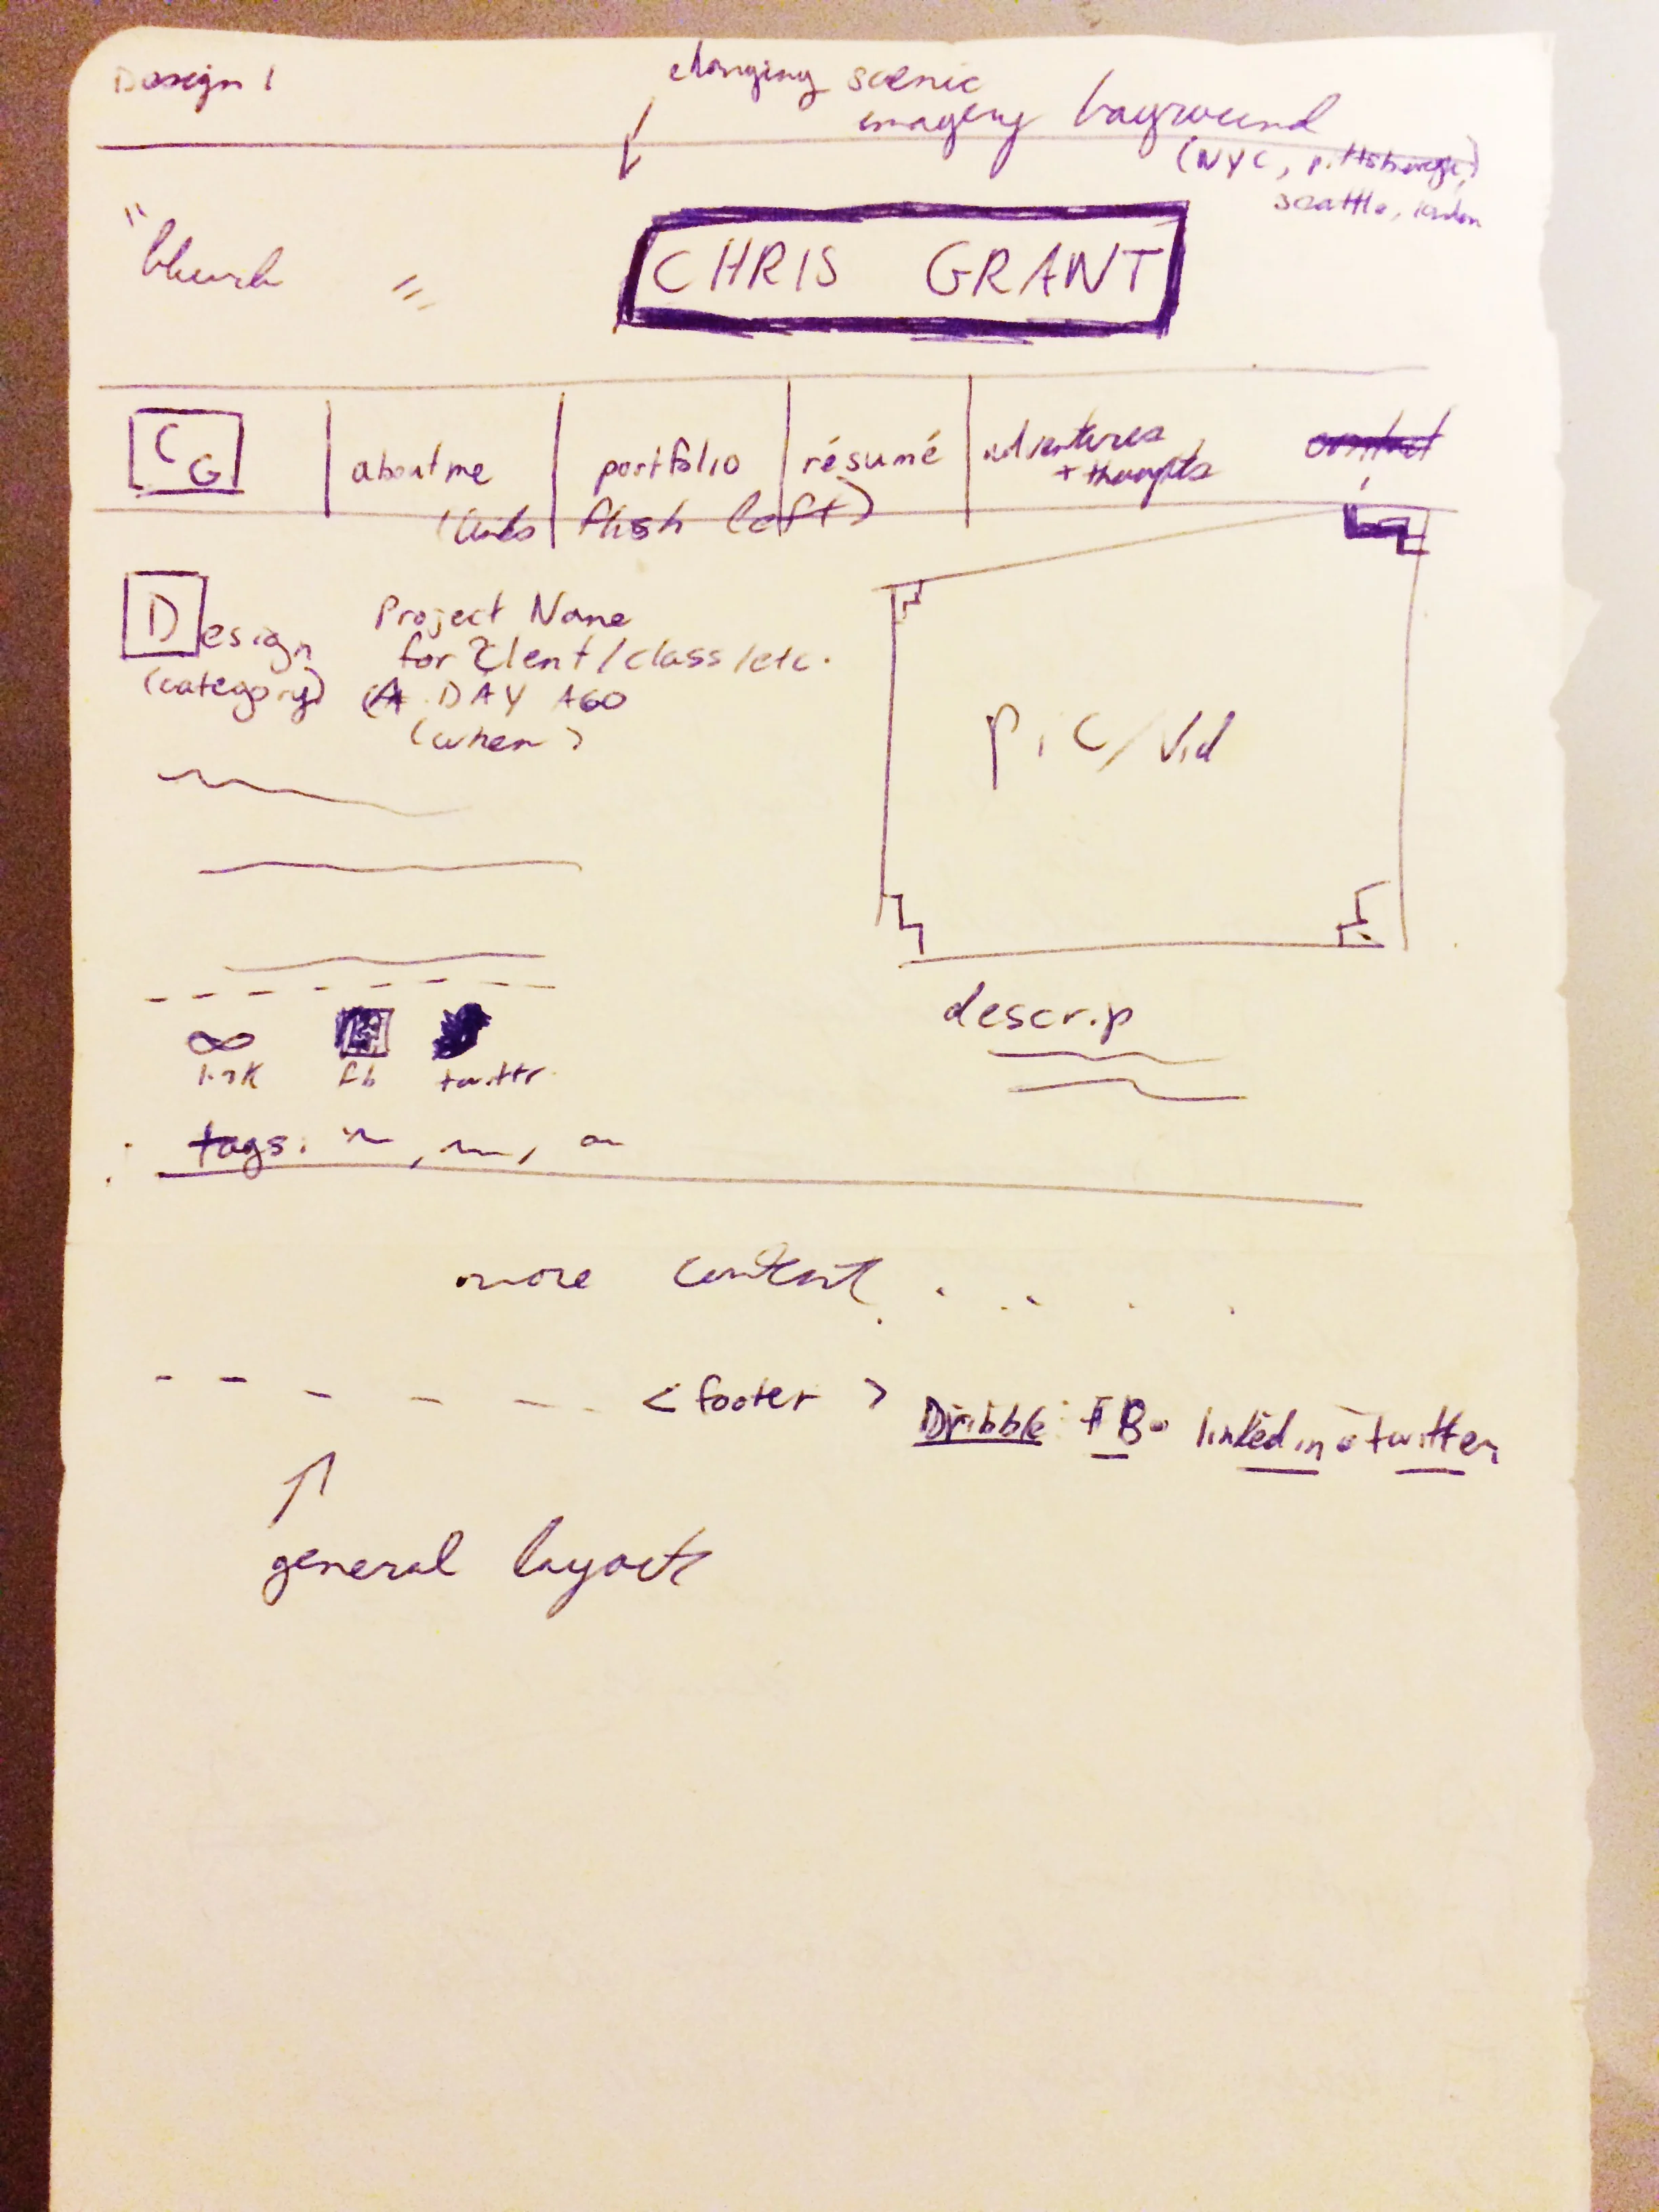 Design 1
changing scenic
imagery baground
(NYC, pittsburgh,)
seattle, london
CHRIS GRANT
"blurb "
CG
about me
portfolio
résumé
adventures
+ thoughts
contact
(links flush left)
Design
(category)
Project Name
for Client/class/etc.
(A DAY AGO
(when)
pic/vid
descrip
fb
twittr.
tags:
more content . . . . .
<footer>
Dribbble FB linkedin twitter
general layout